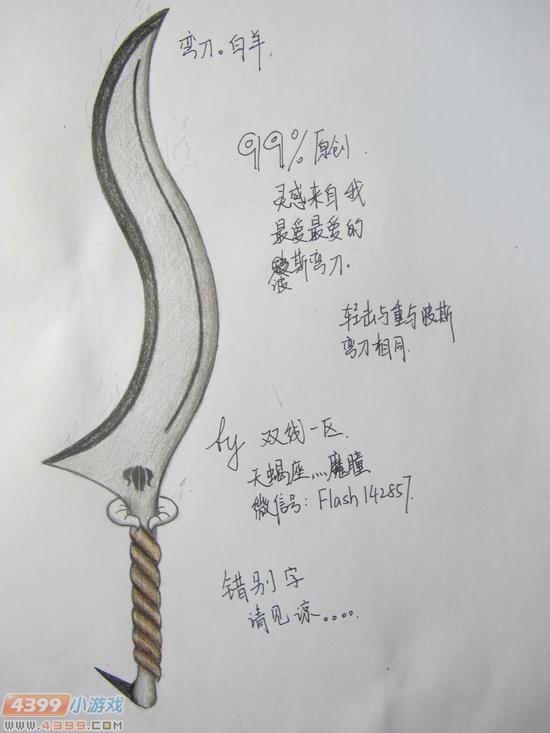 弯刀。白羊.
99%原创.
灵感来自我
最爱最爱的
波斯弯刀.
轻击与重与波斯
弯刀相同.
by 双线一区.
天蝎座灬魔瞳
微信号: Flash142857.
错别字
请见谅....
4399小游戏
www.4399.com